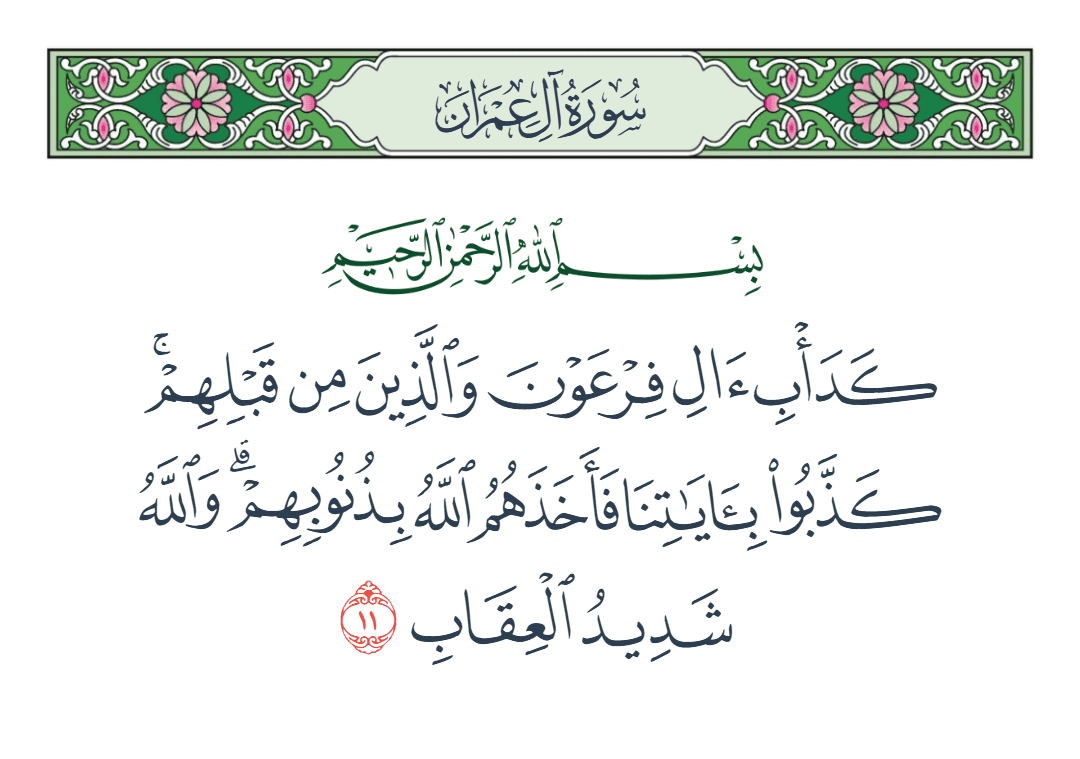 سُورَةُ آلِ عِمْرَانَ
بِسْمِ ٱللَّهِ ٱلرَّحْمَٰنِ ٱلرَّحِيمِ
كَدَأْبِ ءَالِ فِرْعَوْنَ وَٱلَّذِينَ مِن قَبْلِهِمْۚ
كَذَّبُوا۟ بِـَٔايَـٰتِنَا فَأَخَذَهُمُ ٱللَّهُ بِذُنُوبِهِمْۗ وَٱللَّهُ
شَدِيدُ ٱلْعِقَابِ ١١